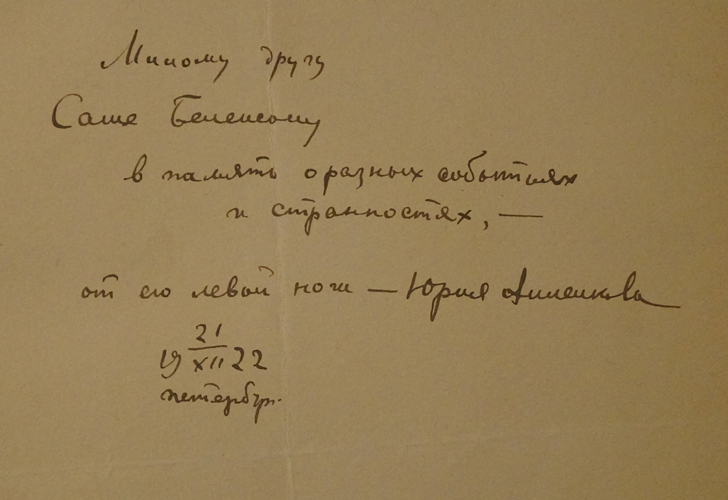 Милому другу
Саше Беленсону
в память о разных событиях
и странностях, —
от его левой ноги — Юрия Анненкова
19 21/XII 22
петербург.